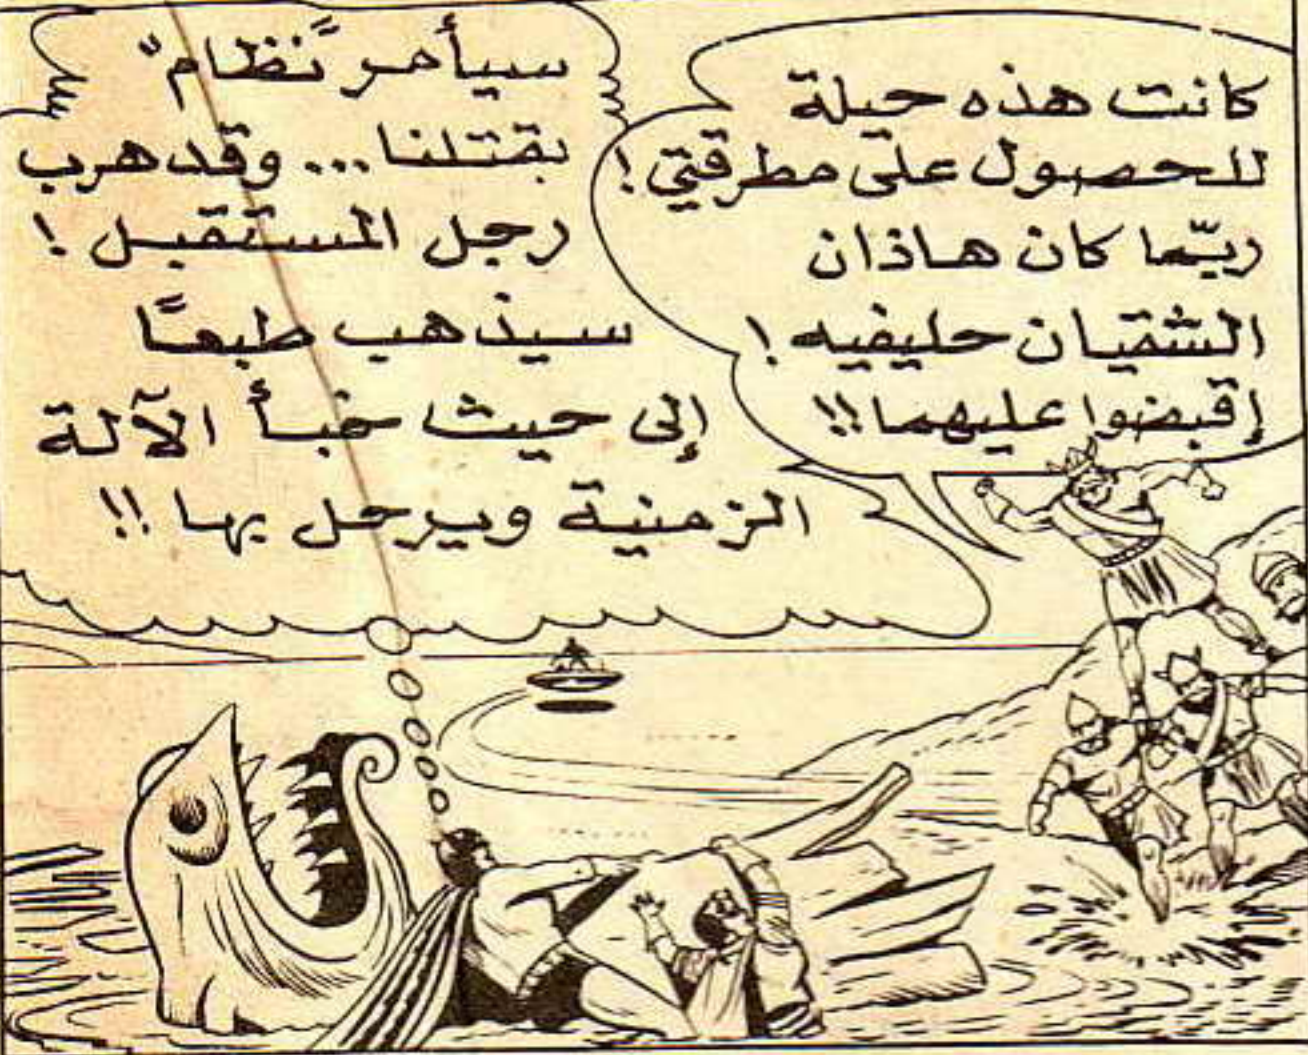 كانت هذه حيلة
للحصول على مطرقتي!
ربّما كان هاذان
الشقيان حليفيه!
إقبضوا عليهما!!
سيأمر "نظام"
بقتلنا... وقد هرب
رجل المستقبل!
سيذهب طبعًا
إلى حيث خبأ الآلة
الزمنية ويرحل بها!!